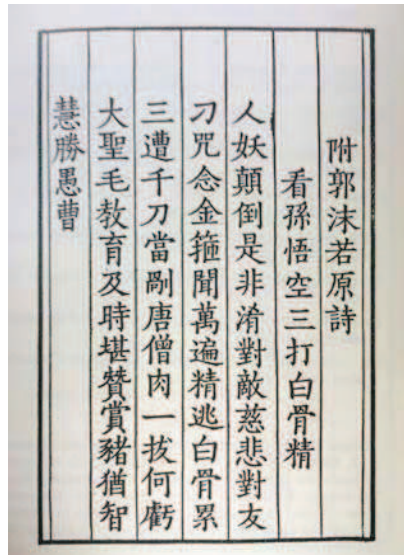 附郭沫若原詩
看孫悟空三打白骨精
人妖顛倒是非淆對敵慈悲對友
刁咒念金箍聞萬遍精逃白骨累
三遭千刀當剮唐僧肉一拔何虧
大聖毛教育及時堪贊賞豬猶智
慧勝愚曹